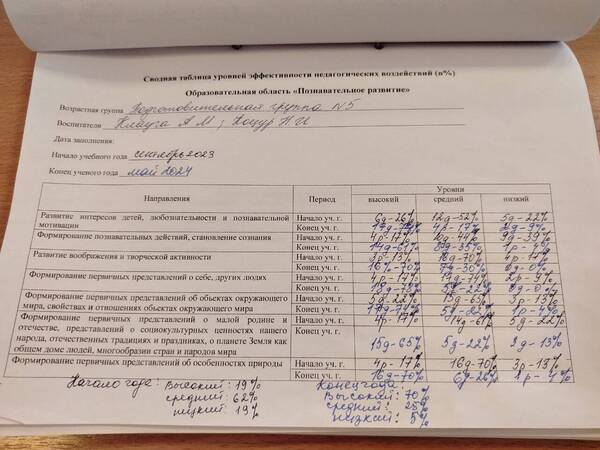 Сводная таблица уровней эффективности педагогических воздействий (n%)
Образовательная область «Познавательное развитие»
Возрастная группа Подготовительная группа N5
Воспитатели А М ; Н И
Дата заполнения:
Начало учебного года сентябрь 2023
Конец ученого года май 2024
Направления Период Уровни
высокий средний низкий
Развитие интересов детей, любознательности и познавательной мотивации
Начало уч. г. 6д-26% 12д-52% 5д-22%
Конец уч. г. 17д-74% 4р-17% 2д-9%
Формирование познавательных действий, становление сознания
Начало уч. г. 4р-17% 10д-44% 9д-39%
Конец уч. г. 14д-61% 35% 1р-4%
Развитие воображения и творческой активности
Начало уч. г. 3р-13% 16д-70% 4р-17%
Конец уч. г. 16%-70% 7д-30% 0д-0%
Формирование первичных представлений о себе, других людях
Начало уч. г. 4р- 17д-74% 2р-9%
Конец уч. г. 5д-22% 0д-0%
Формирование первичных представлений об объектах окружающего мира, свойствах и отношениях объектах окружающего мира
Начало уч. г. 5д-22% 15д-65% 3р-13%
Конец уч. г. 17д-74% 5д-22% 1р-4%
Формирование первичных представлений о малой родине и отечестве, представлений о социокультурных ценностях нашего народа, отечественных традициях и праздниках, о планете Земля как общем доме людей, многообразии стран и народов мира
Начало уч. г. 4р-17% 14д-61% 5д-22%
Конец уч. г. 15д-65% 5д-22% 3д-13%
Формирование первичных представлений об особенностях природы
Начало уч. г. 4р-17% 16д-70% 3р-13%
Конец уч. г. 16д-70% 6д-26% 1р-4%
Начало года: Высокий: 19%
средний: 62%
низкий: 19%
Конец года:
Высокий: 70%
средний: 25%
низкий: 5%